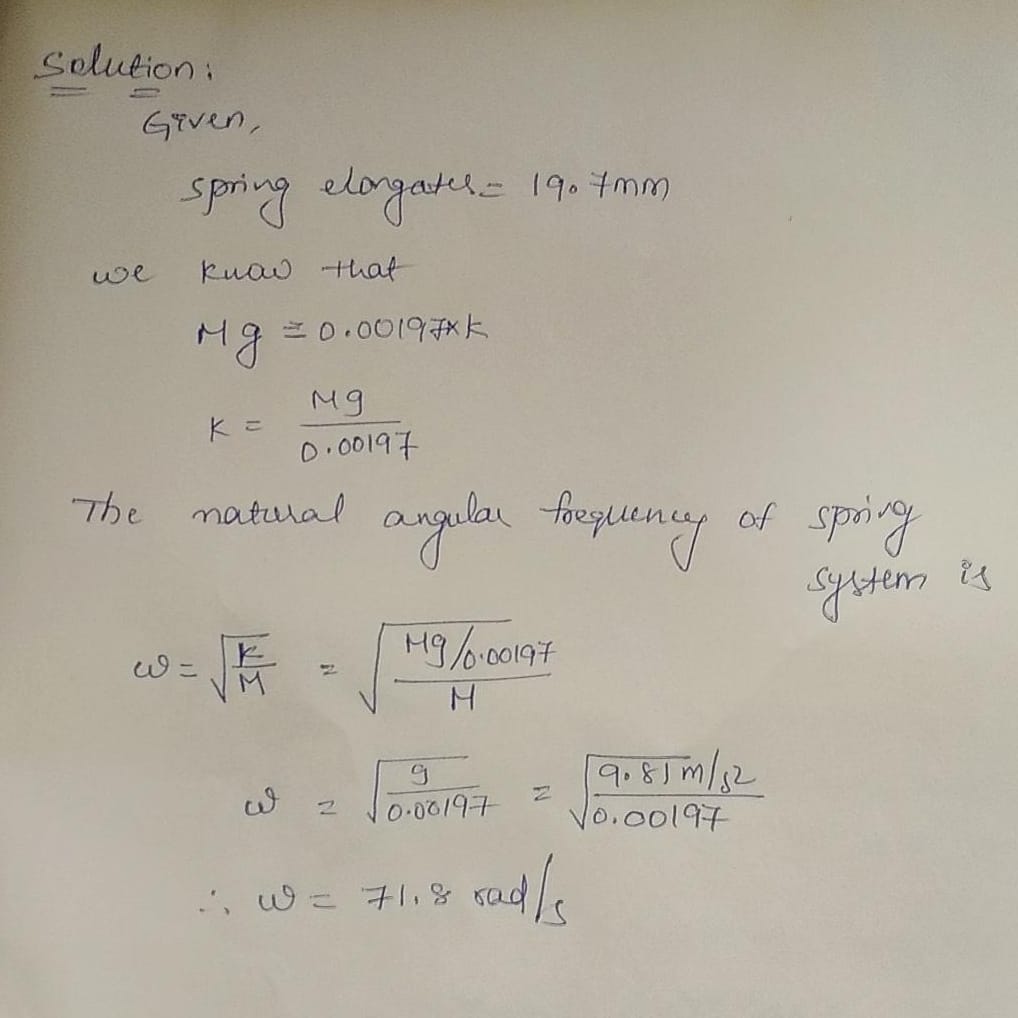 Solution:
Given,
spring elongates = 19.7mm
we know that
Mg = 0.00197×k
K = Mg / 0.00197
The natural angular frequency of spring
system is
ω = √(K/M) = √((Mg/0.00197)/M)
ω = √(g/0.00197) = √(9.81 m/s2/0.00197)
∴ ω = 71.8 rad/s